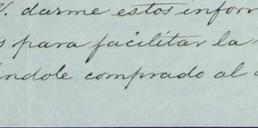 V. darme estos infor
s para facilitar la
índole comprado al